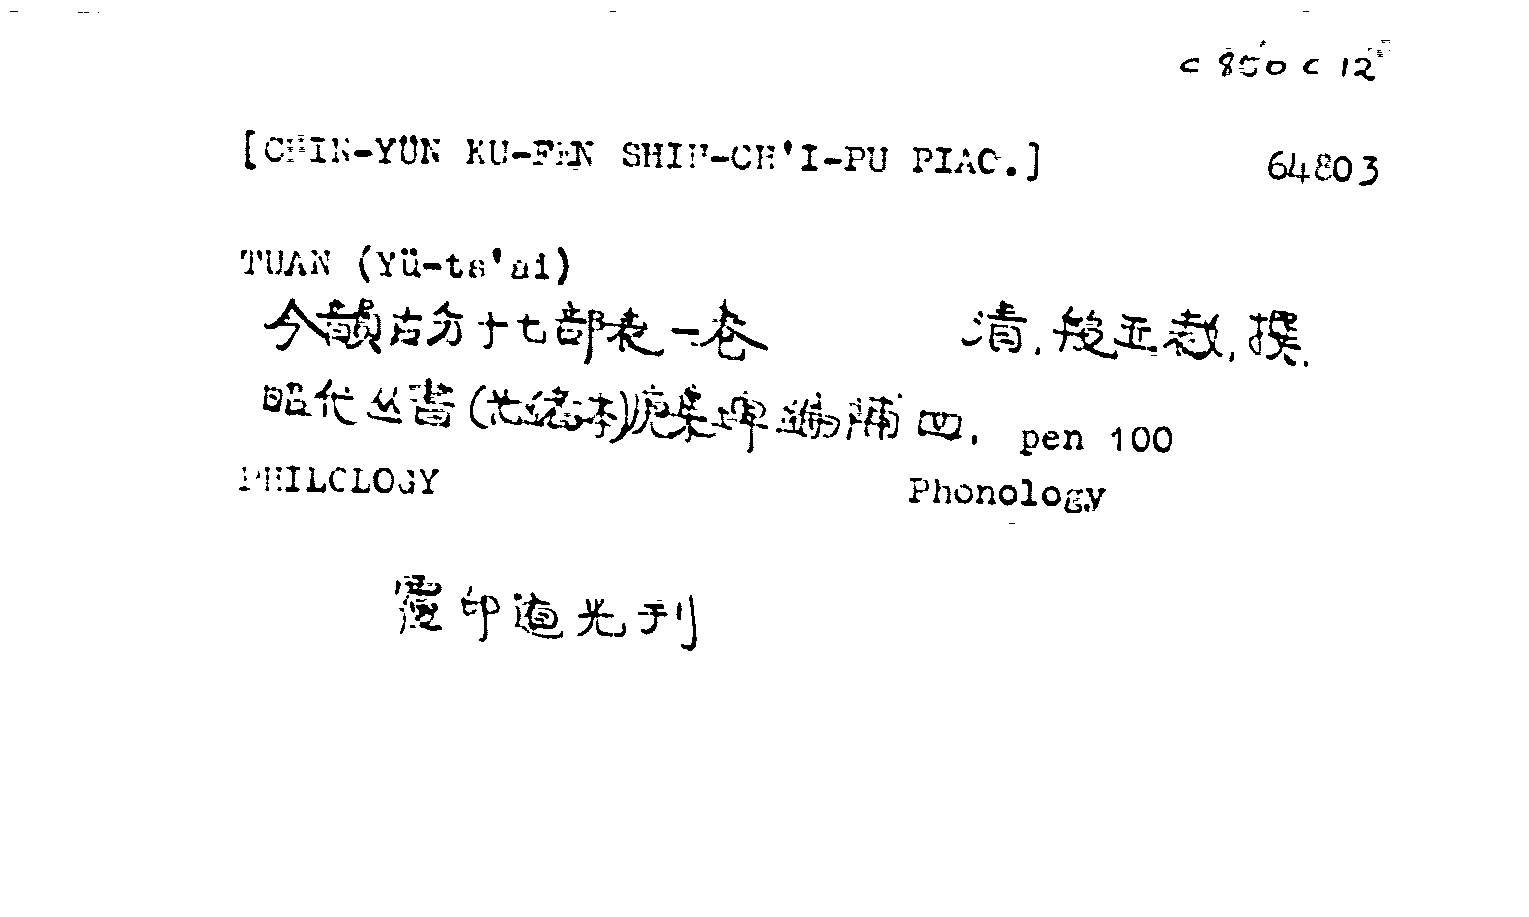 c 850 c 12
[CHIN-YÜN KU-FEN SHIH-CH'I-PU PIAO.]
64803
TUAN (Yü-ts'ai)
今韻古分十七部表一卷 清.段玉裁.撰.
昭代丛書(光緒本)庚集埤編 第四. pen 100
PHILOLOGY Phonology
覆印道光刊